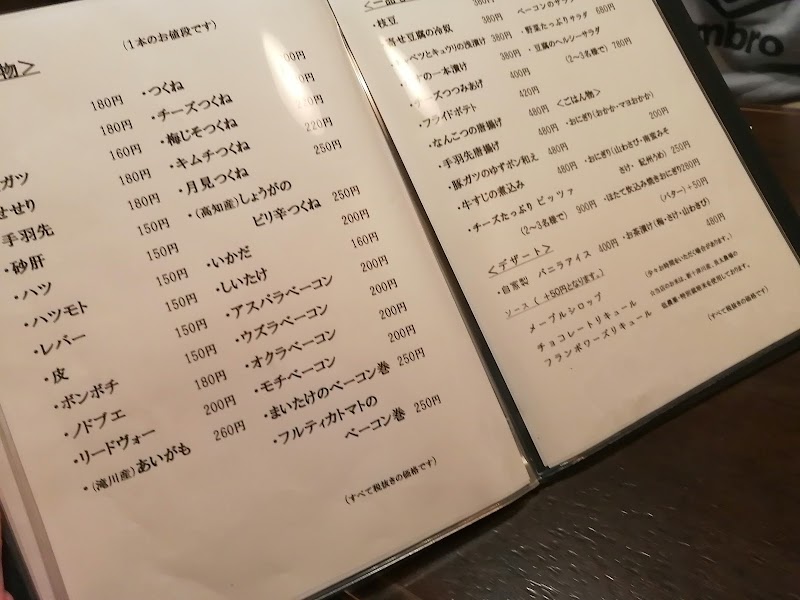 物＞
(1本のお値段です)
180円
180円
ガツ 160円
せせり 180円
手羽先 180円
・砂肝 150円
・ハツ 150円
・ハツモト 150円
・レバー 150円
・皮 150円
・ボンボチ 150円
・ノドブエ 180円
・リードヴォー 200円
・(滝川産)あいがも 260円
・つくね
・チーズつくね
・梅じそつくね
・キムチつくね 220円
・月見つくね 250円
・(高知産)しょうがの
ピリ辛つくね 250円
・いかだ 200円
・しいたけ 160円
・アスパラベーコン 200円
・ウズラベーコン 200円
・オクラベーコン 200円
・モチベーコン 200円
・まいたけのベーコン巻 250円
・フルティカトマトの
ベーコン巻 250円
(すべて税抜きの価格です)
・枝豆 380円
寄せ豆腐の冷奴 380円
キャベツとキュウリの浅漬け 380円
の一本漬け 380円
チーズつつみあげ 400円
・フライドポテト 420円
・なんこつの唐揚げ 480円
・手羽先唐揚げ 480円
・豚ガツのゆずポン和え 480円
・牛すじの煮込み 480円
・チーズたっぷり ピッツァ
(2~3名様で) 900円
＜デザート＞
・自家製 バニラアイス 400円
ソース ( +50円となります。)
メープルシロップ
チョコレートリキュール
フランボワーズリキュール
ベーコンのサラダ
・野菜たっぷりサラダ 680円
・豆腐のヘルシーサラダ
(2~3名様で) 780円
＜ごはん物＞
・おにぎり(おかか・マヨおかか)
200円
・おにぎり(山わさび・南蛮みそ
さけ・紀州うめ) 250円
・ほたて炊込み焼きおにぎり280円
(バター)+50円
・お茶漬け(梅・さけ・山わさび)
480円
(少々お時間をいただく場合があります。)
(すべて税抜きの価格です)